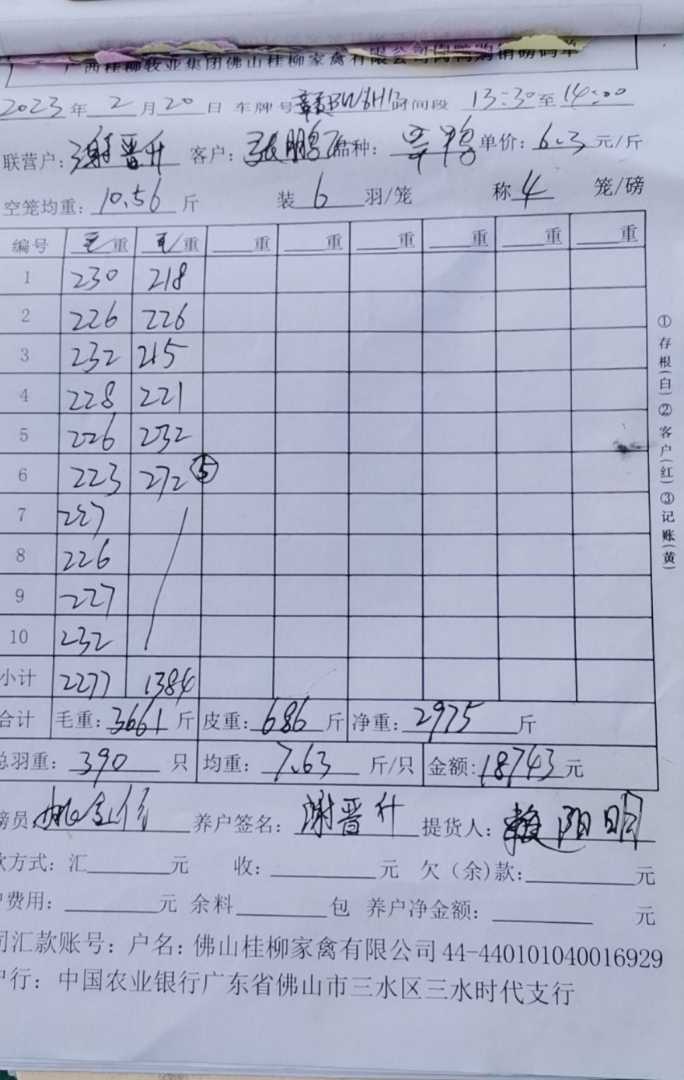 广西桂柳牧业集团佛山桂柳家禽有限公司
2023年2月20日 车牌号 时间段 13:30至14:00
联营户: 谢晋升 客户: 张鹏 品种: 单价: 6.3元/斤
空笼均重: 10.56斤 装6羽/笼 称4笼/磅
编号 毛重 毛重 重 重 重 重 重 重
1 230 218
2 226 226
3 232 215
4 228 221
5 226 232
6 223 272 ⑤
7 227
8 226
9 227
10 232
小计 2277 1384
合计 毛重: 3661斤 皮重: 686斤 净重: 2975斤
总羽重: 390只 均重: 7.63斤/只 金额: 18743元
磅员 养户签名: 谢晋升 提货人: 赖阳明
款方式: 汇 元 收: 元 欠(余)款: 元
户费用: 元 余料 包 养户净金额: 元
司汇款账号: 户名: 佛山桂柳家禽有限公司 44-440101040016929
户行: 中国农业银行广东省佛山市三水区三水时代支行
①存根(白)②客户(红)③记账(黄)